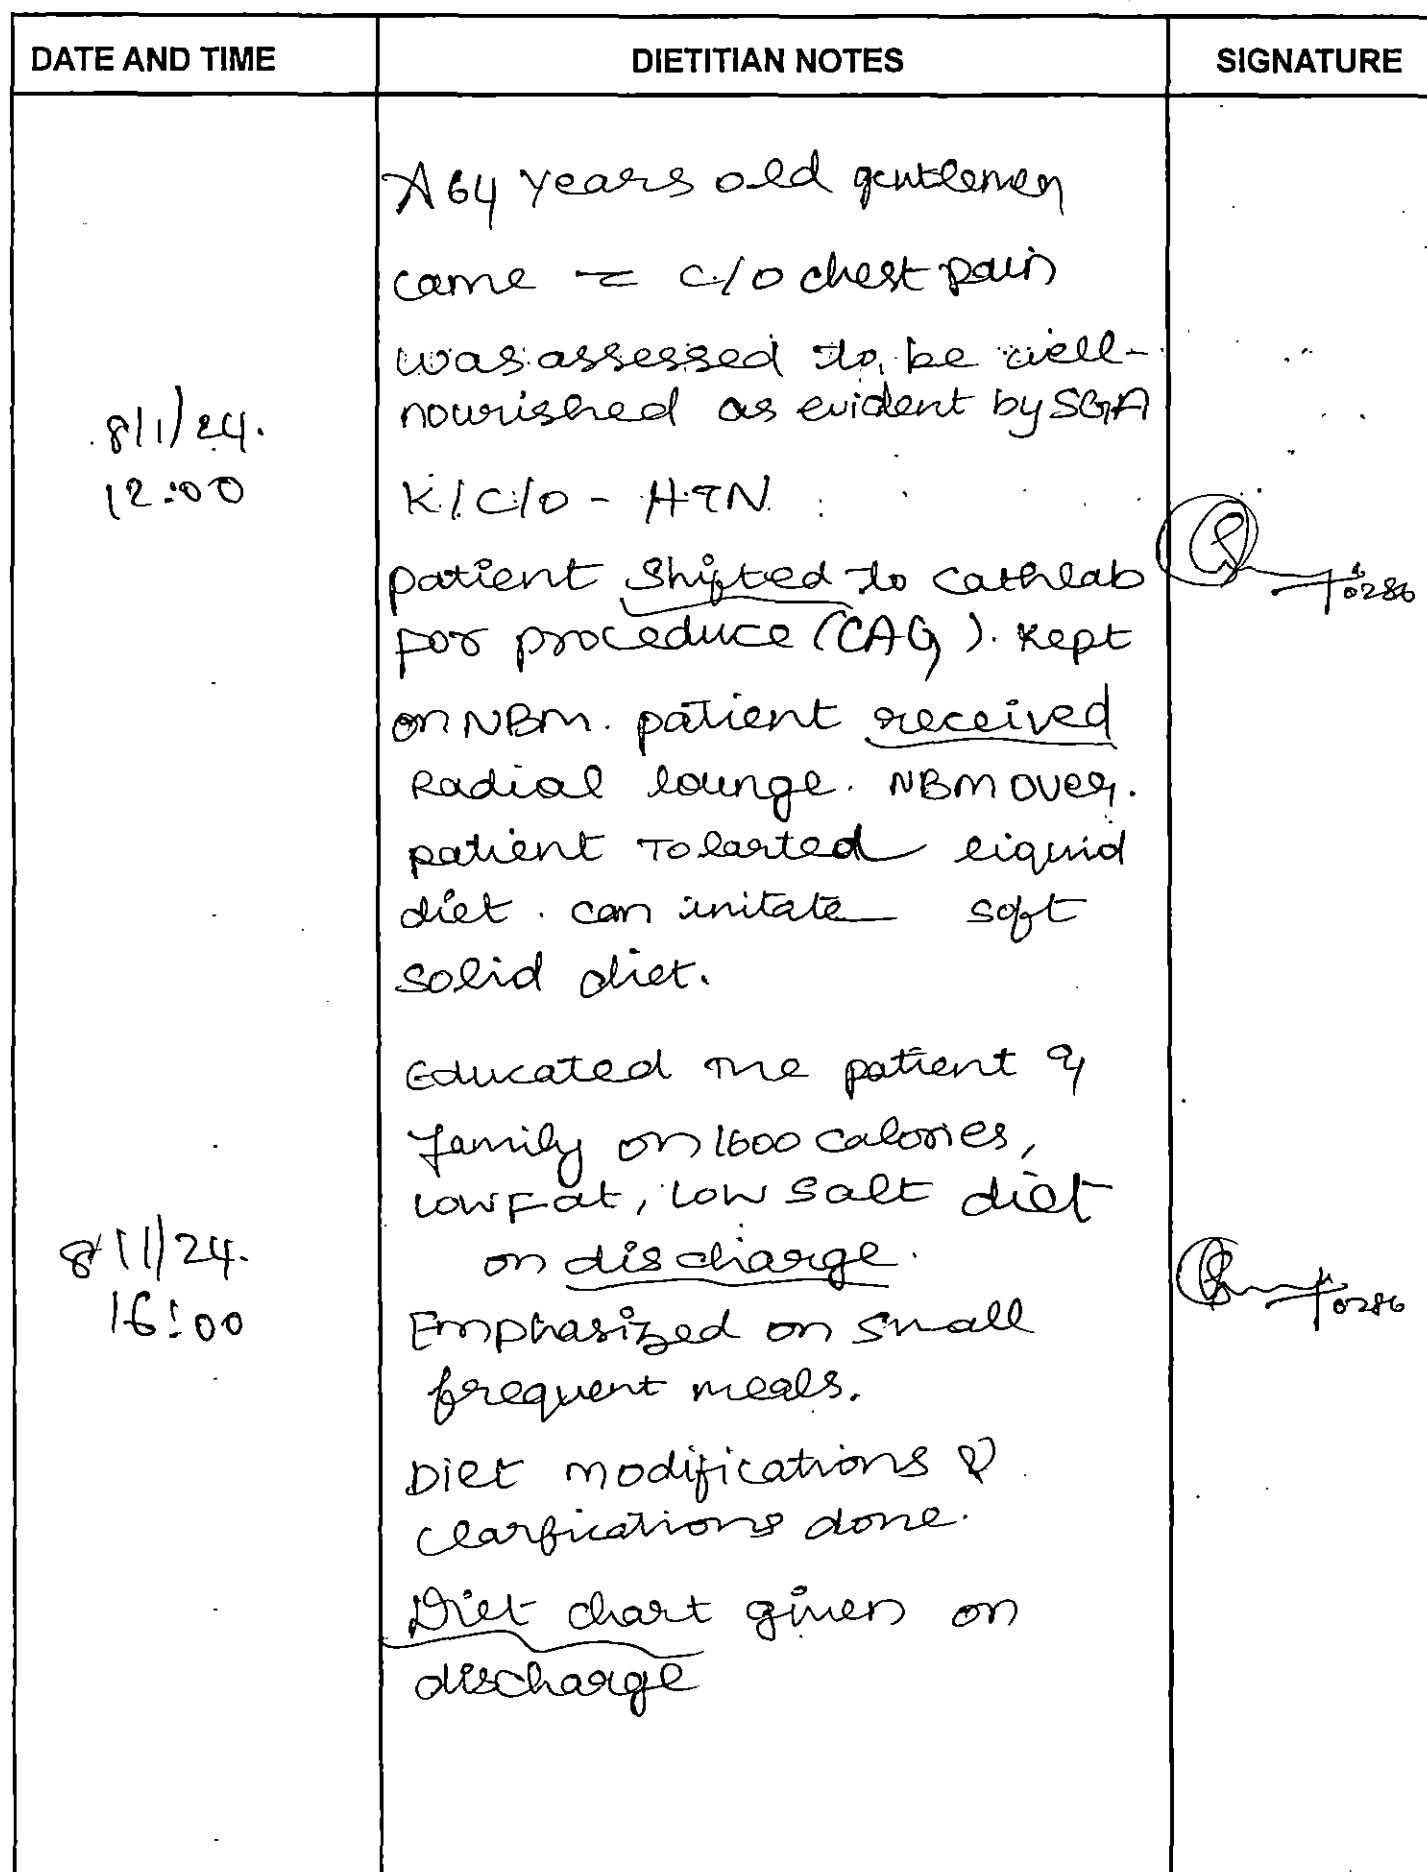 DATE AND TIME
DIETITIAN NOTES
SIGNATURE
A 64 years old gentlemen
came = c/o chest pain
was assessed to be well-
nourished as evident by SGA
8/1/24.
12:00
K/C/O - HTN
patient shifted to cathlab
for proceduce (CAG). Kept
on NBM. patient received
Radial lounge. NBM over.
patient Tolarted liquid
diet. can initate soft
solid diet.
0286
Educated the patient &
family on 1600 calories,
Low Fat, Low salt diet
on discharge.
8/1/24.
16:00
Emphasized on small
frequent meals.
Diet modifications &
clarfications done.
Diet chart given on
discharge
0286